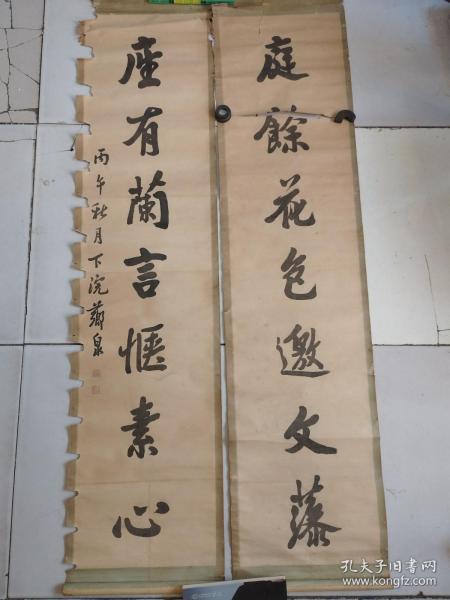 庭餘花色邀文藻
座有蘭言愜素心
丙午秋月下浣藹泉
孔夫子旧书网
www.kongfz.com